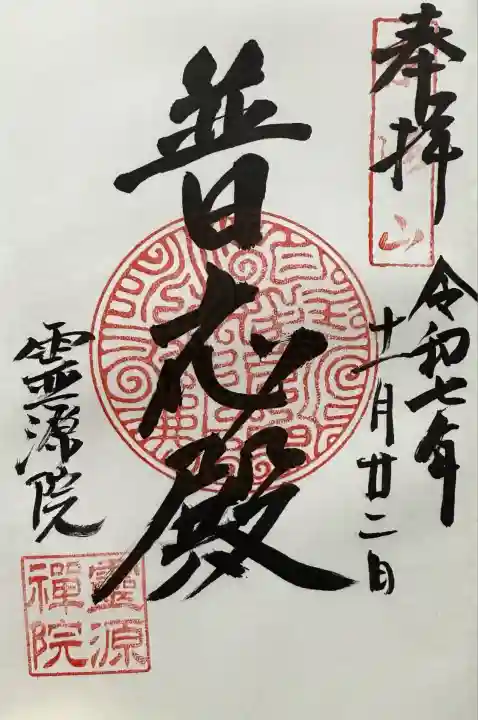 奉拝
令和七年
十一月廿二日
普応殿
霊源院
靈源
禪院